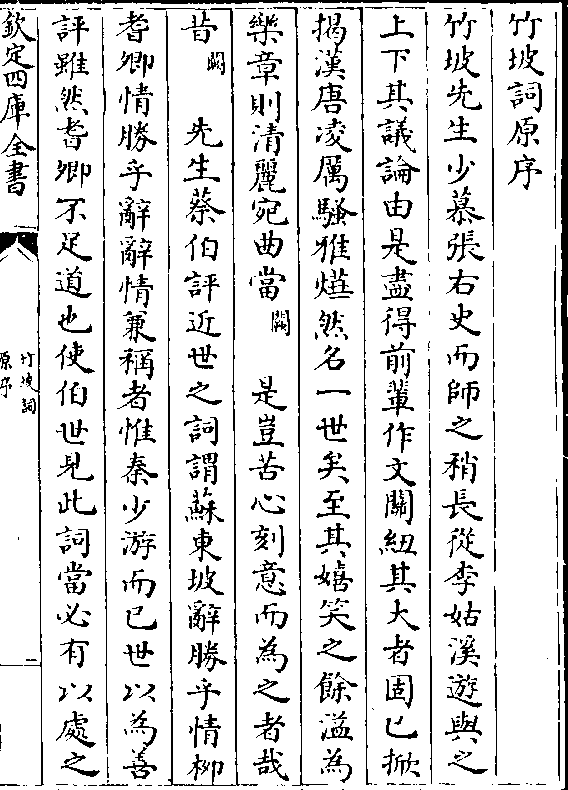 竹坡詞原序
竹坡先生少慕張右史而師之稍長從李姑溪遊與之
上下其議論由是盡得前輩作文關紐其大者固已掀
揭漢唐凌厲騷雅燁然名一世矣至其嬉笑之餘溢為
樂章則清麗宛曲當闕是豈苦心刻意而為之者哉
昔闕先生蔡伯評近世之詞謂蘇東坡辭勝乎情柳
耆卿情勝乎辭辭情兼稱者惟秦少游而已世以為善
評雖然耆卿不足道也使伯世見此詞當必有以處之
欽定四庫全書
竹坡詞
原序
一